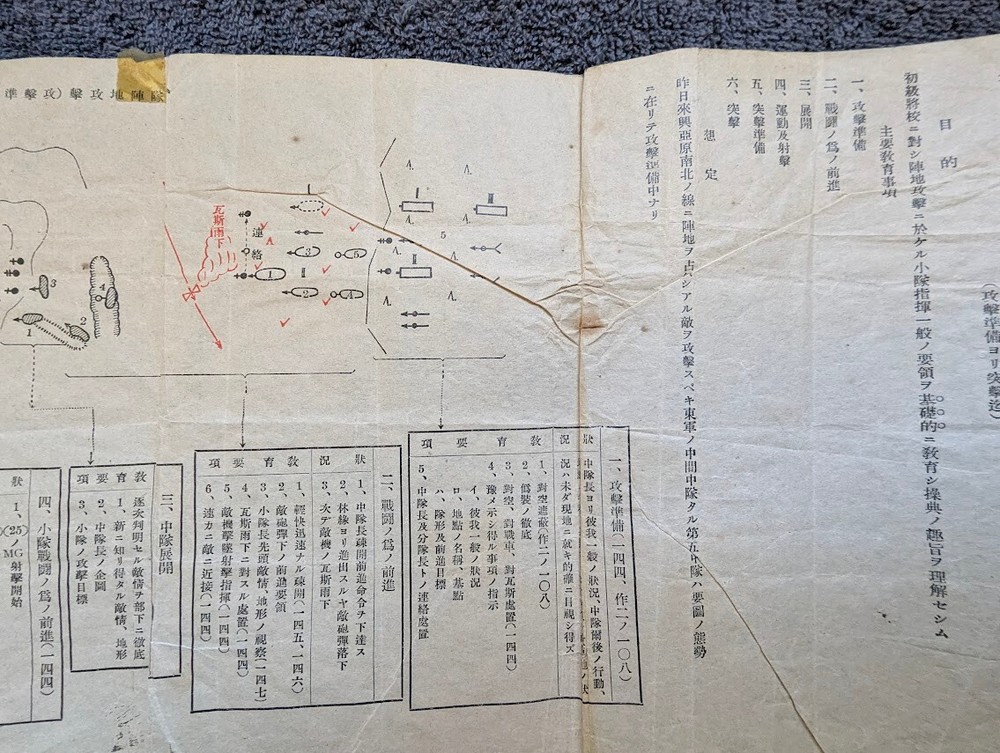 隊陣地攻擊(攻擊準
(攻擊準備ヨリ突擊迄)
目的
初級將校ニ對シ陣地攻擊ニ於ケル小隊指揮一般ノ要領ヲ基礎的ニ敎育シ操典ノ趣旨ヲ理解セシム
主要敎育事項
一、攻擊準備
二、戰鬪ノ爲ノ前進
三、展開
四、運動及射擊
五、突擊準備
六、突擊
想定
昨日來興亞原南北ノ線ニ陣地ヲ占シアル敵ヲ攻擊スベキ東軍ノ中間中隊タル第五中隊ハ要圖ノ態勢
ニ在リテ攻擊準備中ナリ
瓦斯雨下
連絡
1
2
3
4
5
1
2
3
4
5
一、攻擊準備(一四四、作二ノ一〇八)
狀況
中隊長ヨリ彼我一般ノ狀況、中隊爾後ノ行動、
況ハ未ダ現地ニ就キ的確ニ目視シ得ズ
敎育要項
1、對空遮蔽(作二ノ一〇八)
2、僞裝ノ徹底
3、對空、對戰車、對瓦斯處置(一四四)
4、豫メ示シ得ル事項ノ指示
イ、彼我一般ノ狀況
ロ、地點ノ名稱、基點
ハ、隊形及前進目標
5、中隊長及分隊長トノ連絡處置
二、戰鬪ノ爲ノ前進
狀況
1、中隊長疎開前進命令ヲ下達ス
2、林緣ヨリ進出スルヤ敵砲彈落下
3、次デ敵機ノ瓦斯雨下
敎育要項
1、輕快迅速ナル疎開(一四五、一四六)
2、敵砲彈下ノ前進要領
3、小隊長先頭敵情、地形ノ視察(一四七)
4、瓦斯雨下ニ對スル處置(一四四)
5、敵機擊墜射擊指揮(一四四)
6、速カニ敵ニ近接(一四四)
三、中隊展開
敎育要項
逐次判明セル敵情ヲ部下ニ徹底
1、新ニ知リ得タル敵情、地形
2、中隊長ノ企圖
3、小隊ノ攻擊目標
四、小隊戰鬪ノ爲ノ前進(一四四)
狀
1、(25)MG射擊開始